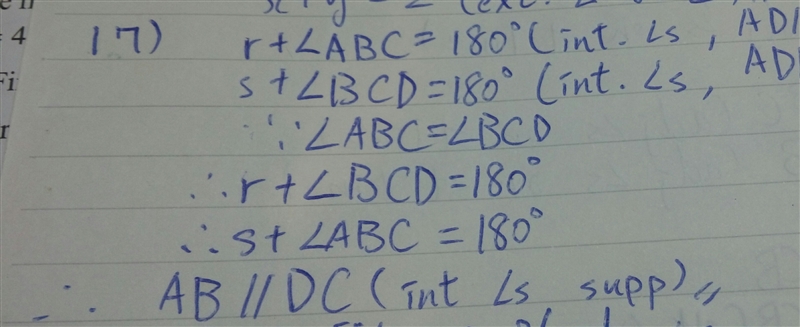 4
17) r+∠ABC=180°(int. ∠s, AD
s+∠BCD=180° (int. ∠s, AD
∵∠ABC=∠BCD
∴r+∠BCD=180°
∴s+∠ABC=180°
∴ AB//DC (int ∠s supp)